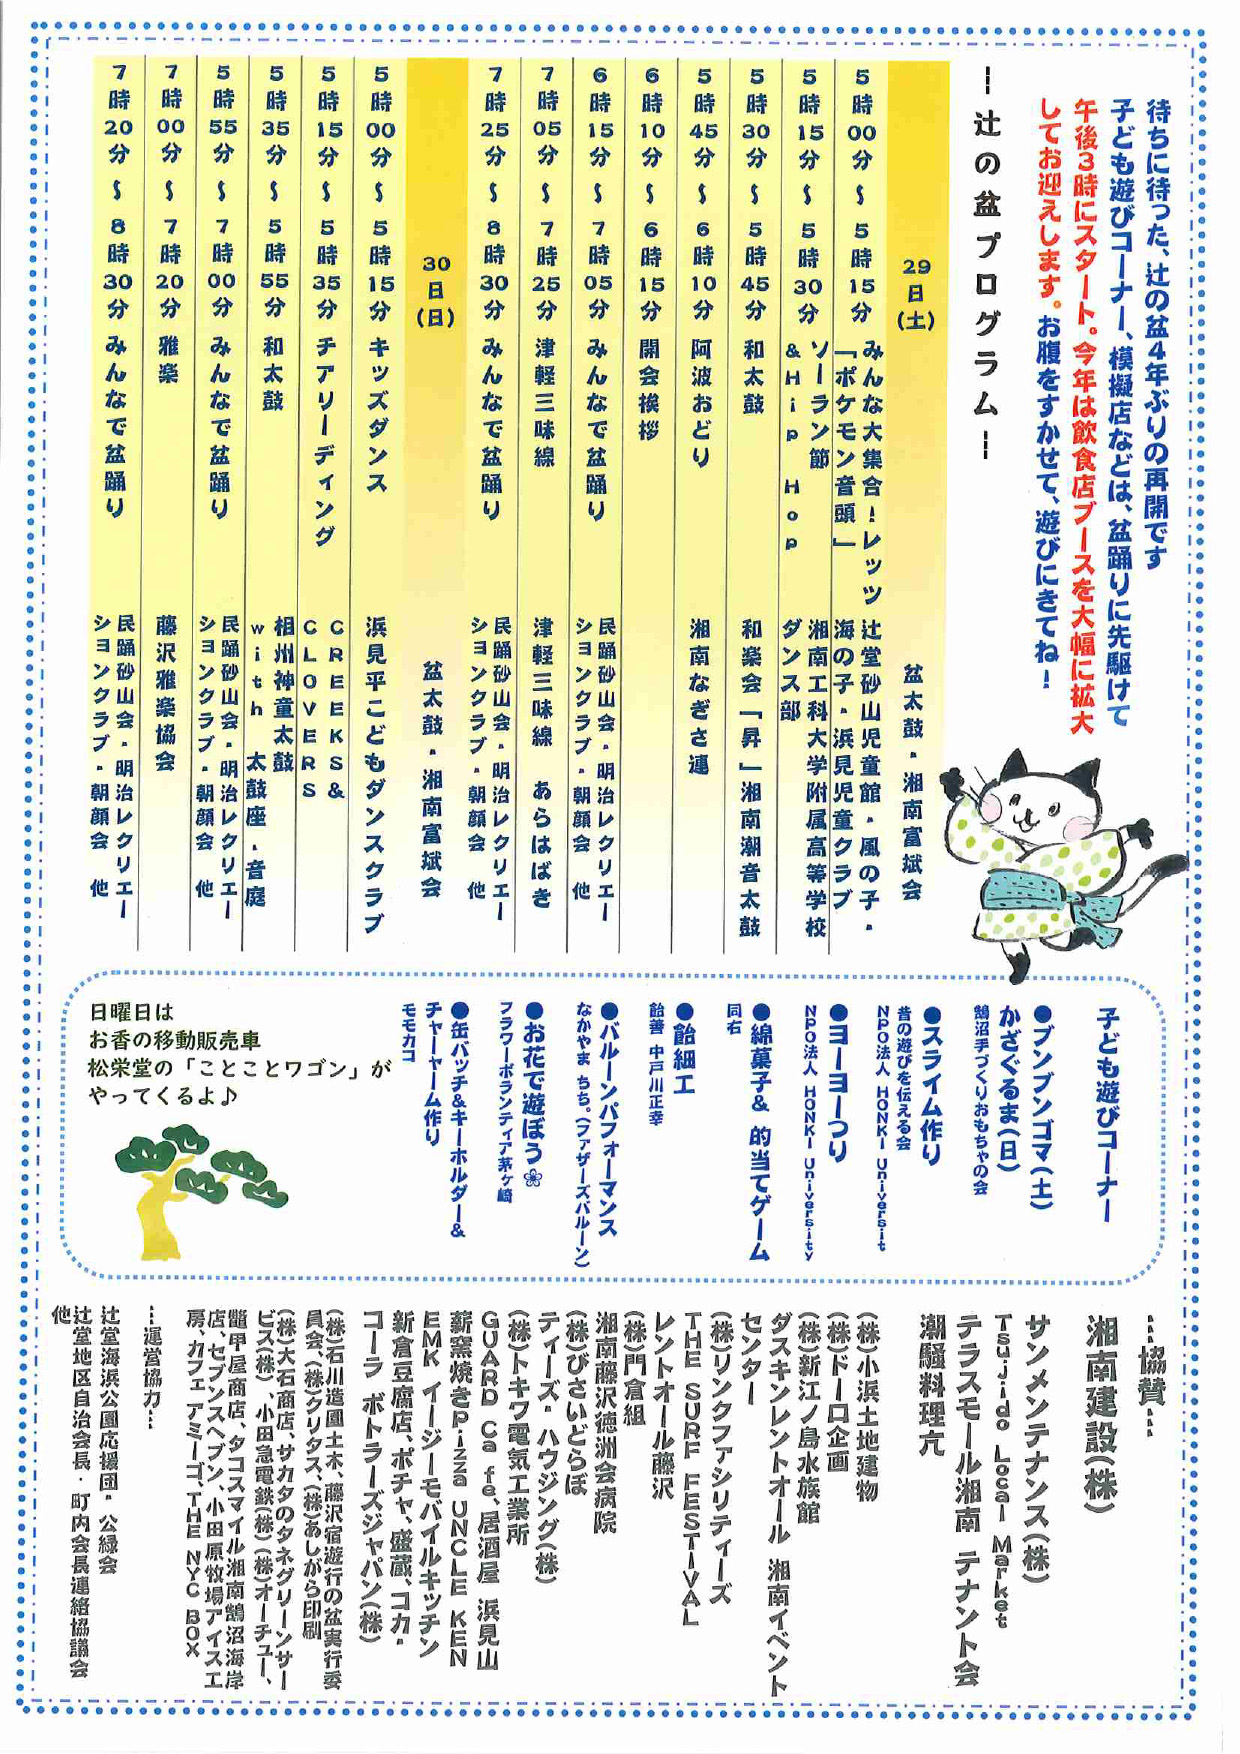 待ちに待った、辻の盆4年ぶりの再開です
子ども遊びコーナー、模擬店などは、盆踊りに先駆けて
午後3時にスタート。今年は飲食店ブースを大幅に拡大
してお迎えします。お腹をすかせて、遊びにきてね！
ー辻の盆プログラムー
29日(土) 盆太鼓・湘南富斌会
5時00分〜5時15分 みんな大集合！レッツ「ポケモン音頭」 辻堂砂山児童館・風の子・海の子・浜見児童クラブ
5時15分〜5時30分 ソーラン節&Hip Hop 湘南工科大学附属高等学校ダンス部
5時30分〜5時45分 和太鼓 和楽会「昇」湘南潮音太鼓
5時45分〜6時10分 阿波おどり 湘南なぎさ連
6時10分〜6時15分 開会挨拶
6時15分〜7時05分 みんなで盆踊り 民踊砂山会・明治レクリエーションクラブ・朝顔会 他
7時05分〜7時25分 津軽三味線 津軽三味線 あらはばき
7時25分〜8時30分 みんなで盆踊り 民踊砂山会・明治レクリエーションクラブ・朝顔会 他
30日(日) 盆太鼓・湘南富斌会
5時00分〜5時15分 キッズダンス 浜見平こどもダンスクラブ
5時15分〜5時35分 チアリーディング CREEKS&CLOVERS
5時35分〜5時55分 和太鼓 相州神童太鼓 with 太鼓座・音庭
5時55分〜7時00分 みんなで盆踊り 民踊砂山会・明治レクリエーションクラブ・朝顔会 他
7時00分〜7時20分 雅楽 藤沢雅楽協会
7時20分〜8時30分 みんなで盆踊り 民踊砂山会・明治レクリエーションクラブ・朝顔会 他
子ども遊びコーナー
●ブンブンゴマ(土)
かざぐるま(日)
鵠沼手づくりおもちゃの会
●スライム作り
昔の遊びを伝える会
NPO法人 HONKI Universit
●ヨーヨーつり
NPO法人 HONKI University
●綿菓子& 的当てゲーム
同右
●飴細工
飴善 中戸川正幸
●バルーンパフォーマンス
なかやま ちち。(ファザーズバルーン)
●お花で遊ぼう
フラワーボランティア茅ヶ崎
●缶バッチ&キーホルダー&
チャーャーム作り
モモカコ
日曜日は
お香の移動販売車
松栄堂の「ことことワゴン」が
やってくるよ♪
…協賛…
湘南建設(株)
サンメンテナンス(株)
Tsujido Local Market
テラスモール湘南 テナント会
潮騒料理亢
(株)小浜土地建物
(株)ドーロ企画
(株)新江ノ島水族館
ダスキンレントオール 湘南イベント
センター
(株)リンクファシリティーズ
THE SURF FESTIVAL
レントオール藤沢
(株)門倉組
湘南藤沢徳洲会病院
(株)びさいどらぼ
ティーズ・ハウジング(株)
(株)トキワ電気工業所
GUARD Cafe、居酒屋 浜見山
薪窯焼きPizza UNCLE KEN
EMK イージーモバイルキッチン
新倉豆腐店、ポチャ、盛蔵、コカ・
コーラ ボトラーズジャパン(株)
(株)石川造園土木、藤沢宿遊行の盆実行委
員会、(株)クリタス、(株)あしがら印刷
(株)大石商店、サカタのタネグリーンサー
ビス(株)、小田急電鉄(株)(株)オーチュー、
鼈甲屋商店、タコスマイル湘南鵠沼海岸
店、セブンスヘブン、小田原牧場アイス工
房、カフェ アミーゴ、THE NYC BOX
…運営協力…
辻堂海浜公園応援団・公縁会
辻堂地区自治会長・町内会長連絡協議会
他